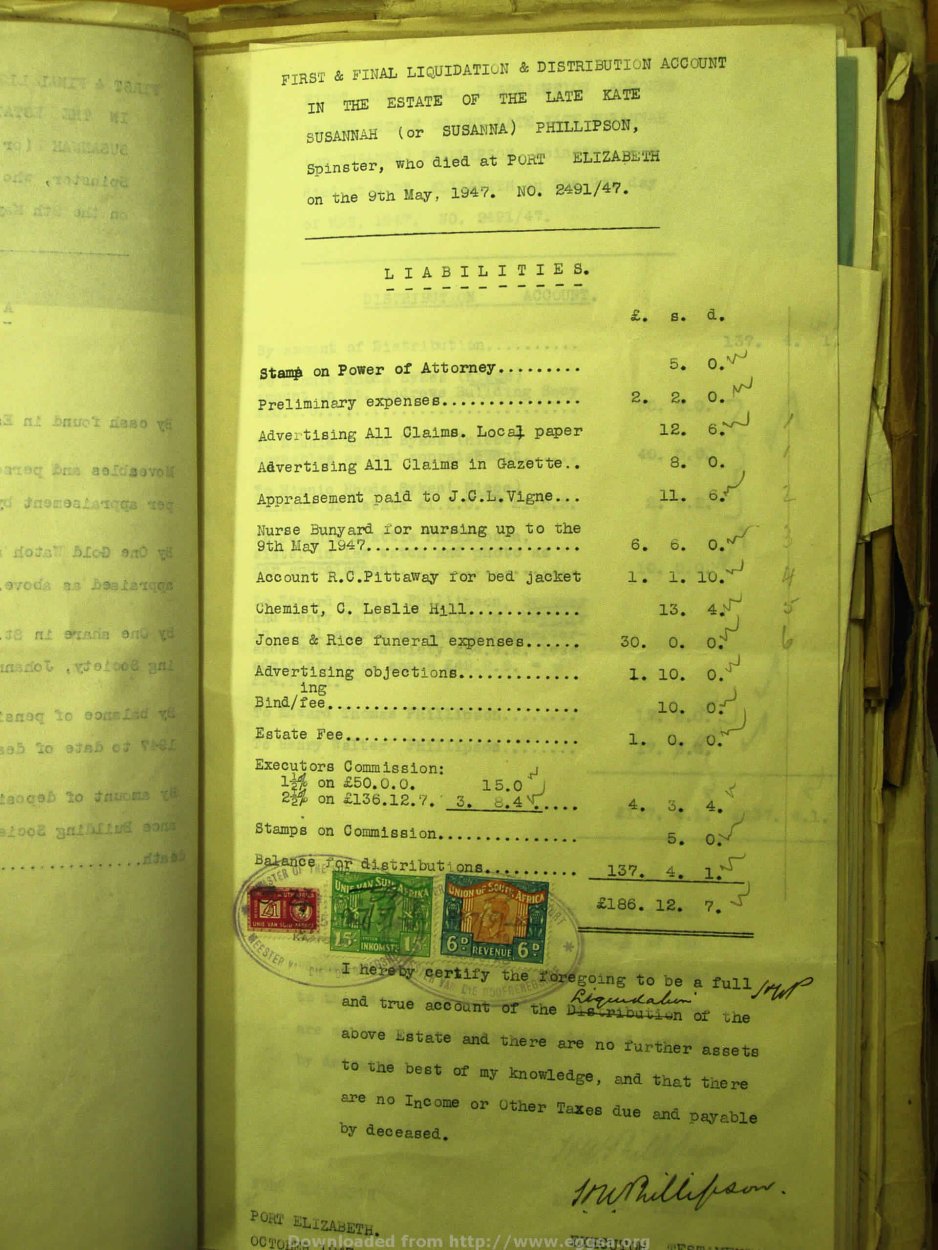 FIRST & FINAL LIQUIDATION & DISTRIBUTION ACCOUNT
IN THE ESTATE OF THE LATE KATE
SUSANNAH (or SUSANNA) PHILLIPSON,
Spinster, who died at PORT ELIZABETH
on the 9th May, 1947. NO. 2491/47.
LIABILITIES.
£. s. d.
Stamp on Power of Attorney......... 5. 0.
Preliminary expenses............... 2. 2. 0.
Advertising All Claims. Local paper 12. 6.
Advertising All Claims in Gazette.. 8. 0.
Appraisement paid to J.C.L.Vigne... 11. 6.
Nurse Bunyard for nursing up to the
9th May 1947....................... 6. 6. 0.
Account R.C.Pittaway for bed jacket 1. 1. 10.
Chemist, C. Leslie Hill............ 13. 4.
Jones & Rice funeral expenses...... 30. 0. 0.
Advertising objections............. 1. 10. 0.
ing
Bind/fee........................... 10. 0.
Estate Fee......................... 1. 0. 0.
Executors Commission:
1½% on £50.0.0. 15.0
2½% on £136.12.7. 3. 8.4 ..... 4. 3. 4.
Stamps on Commission............... 5. 0.
Balance for distributions.......... 137. 4. 1.
£186. 12. 7.
UNIE VAN SUID AFRIKA
15/- INKOMSTE 15/-
UNION OF SOUTH AFRICA
6D REVENUE 6D
I hereby certify the foregoing to be a full
and true account of the Distribution of the
Liquidation
above Estate and there are no further assets
to the best of my knowledge, and that there
are no Income or Other Taxes due and payable
by deceased.
PORT ELIZABETH.
OCTOBER
Downloaded from http://www.eggsa.org